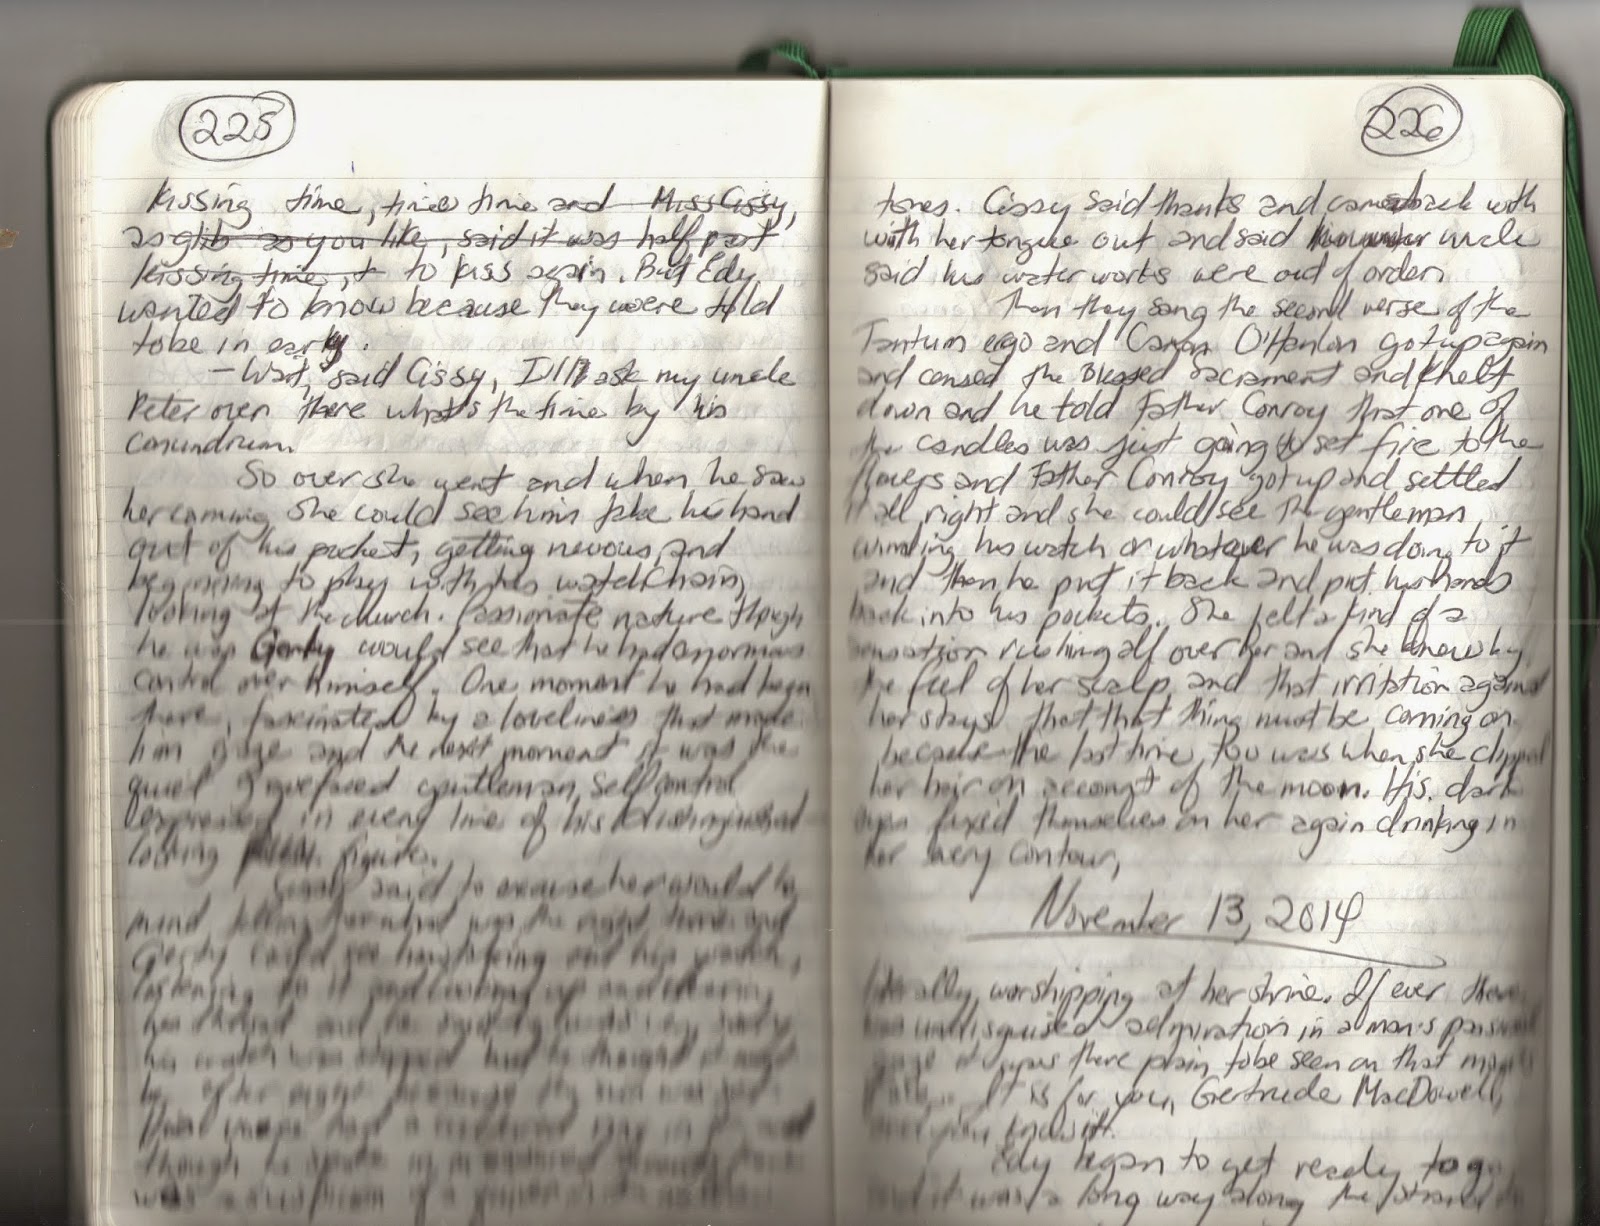 225
kissing time, time time and Miss Cissy,
as glib as you like, said it was half past
kissing time, t to kiss again. But Edy
wanted to know because they were told
to be in early.
– Wait, said Cissy, I'll ask my uncle
Peter over there what's the time by his
conundrum.
So over she went and when he saw
her coming she could see him take his hand
out of his pocket, getting nevous, and
beginning to play with his watchchain,
looking at the church. Passionate nature though
he was Gerty would see that he had enormous
control over himself. One moment he had been
there, fascinated by a loveliness that made
him gaze and the next moment it was the
quiet gravefaced gentleman, selfcontrol
expressed in every line of his distinguished
looking figure.
said to excuse her would he
mind telling her what was the right time and
Gerty could see him taking out his watch,
listening to it and looking up and clearing
his throat and he
his watch was stopped but he thought it must
be after eight because the sun was set.
though he spoke in
was a suspicion of a
226
tones. Cissy said thanks and came back with
with her tongue out and said uncle
said his water works were out of order.
Then they sang the second verse of the
Tantum ergo and Canon O'Hanlon got up again
and censed the Blessed Sacrament and knelt
down and he told Father Conroy that one of
the candles was just going to set fire to the
flowers and Father Conroy got up and settled
it all right and she could see the gentleman
winding his watch or whatever he was doing to it
and then he put it back and put his hands
back into his pockets. She felt a kind of a
sensation rushing all over her and she knew by
the feel of her scalp and that irritation against
her stays that that thing must be coming on
because the last time too was when she clipped
her hair on account of the moon. His dark
eyes fixed themselves on her again drinking in
her every contour,
November 13, 2014
literally worshipping at her shrine. If ever there
was undisguised admiration in a man's passionate
gaze it was there plain to be seen on that man's
face. It is for you, Gertrude MacDowell,
and you know it.
Edy began to get ready to go
and it was a long way along the strand to